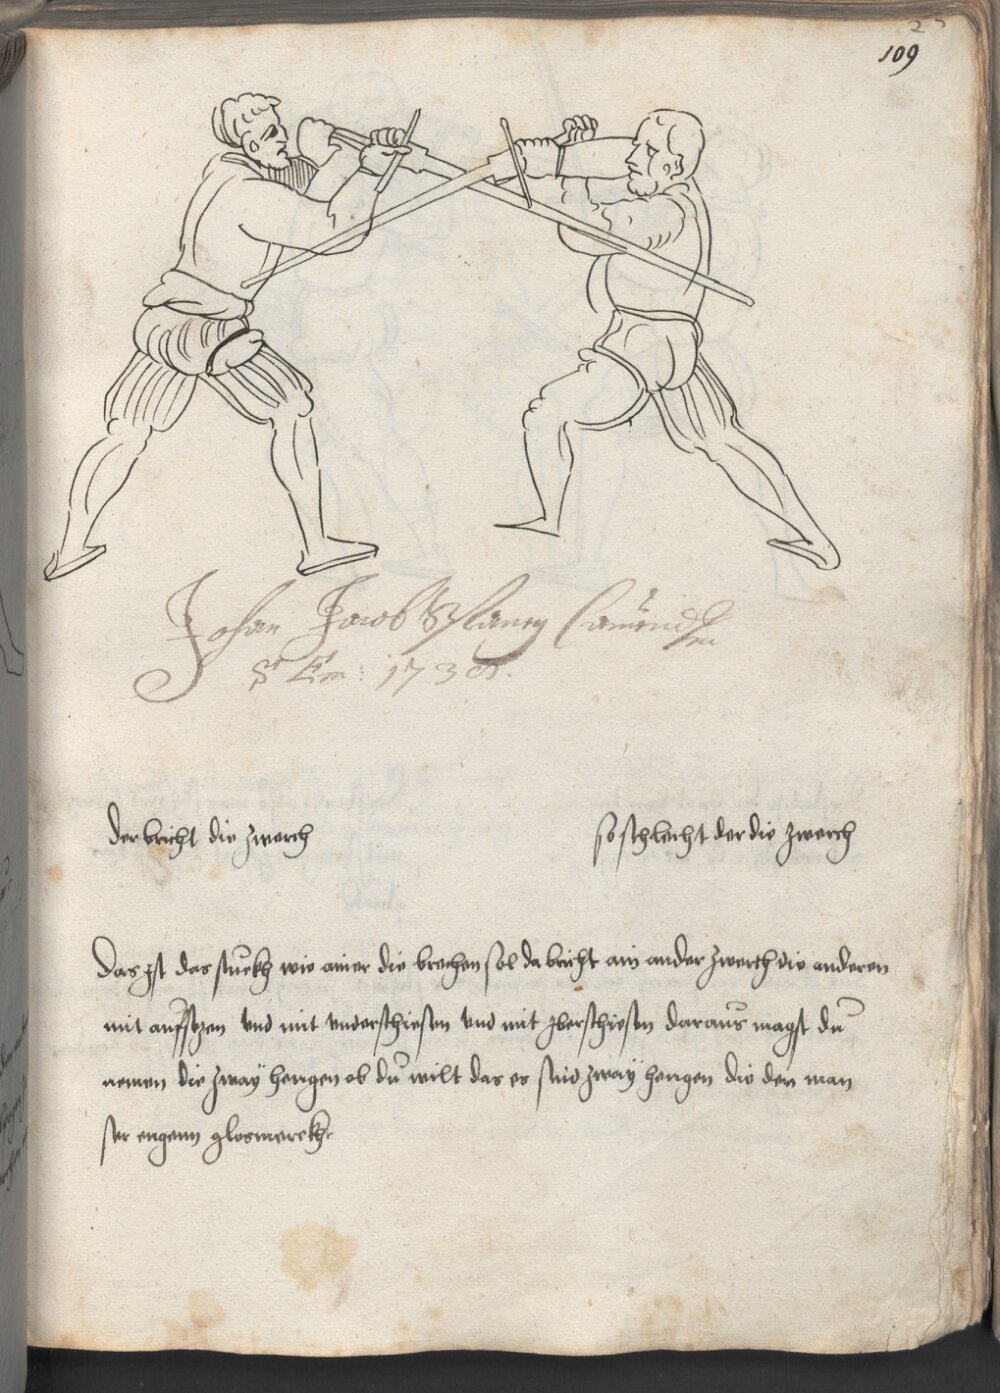 109
Johan Jacob
1738.
der bricht die zwerch
so schlecht der die zwerch
Das ist das stuckh wie ainer die brechen sol da bricht ain ander zwerch die anderen
mit auffsetzen vnd mit vnderschiessen vnd mit yberschiessen daraus magst du
nemen die zway hengen ob du wilt das es sind zway hengen die den man
ser engenn glosmerckh